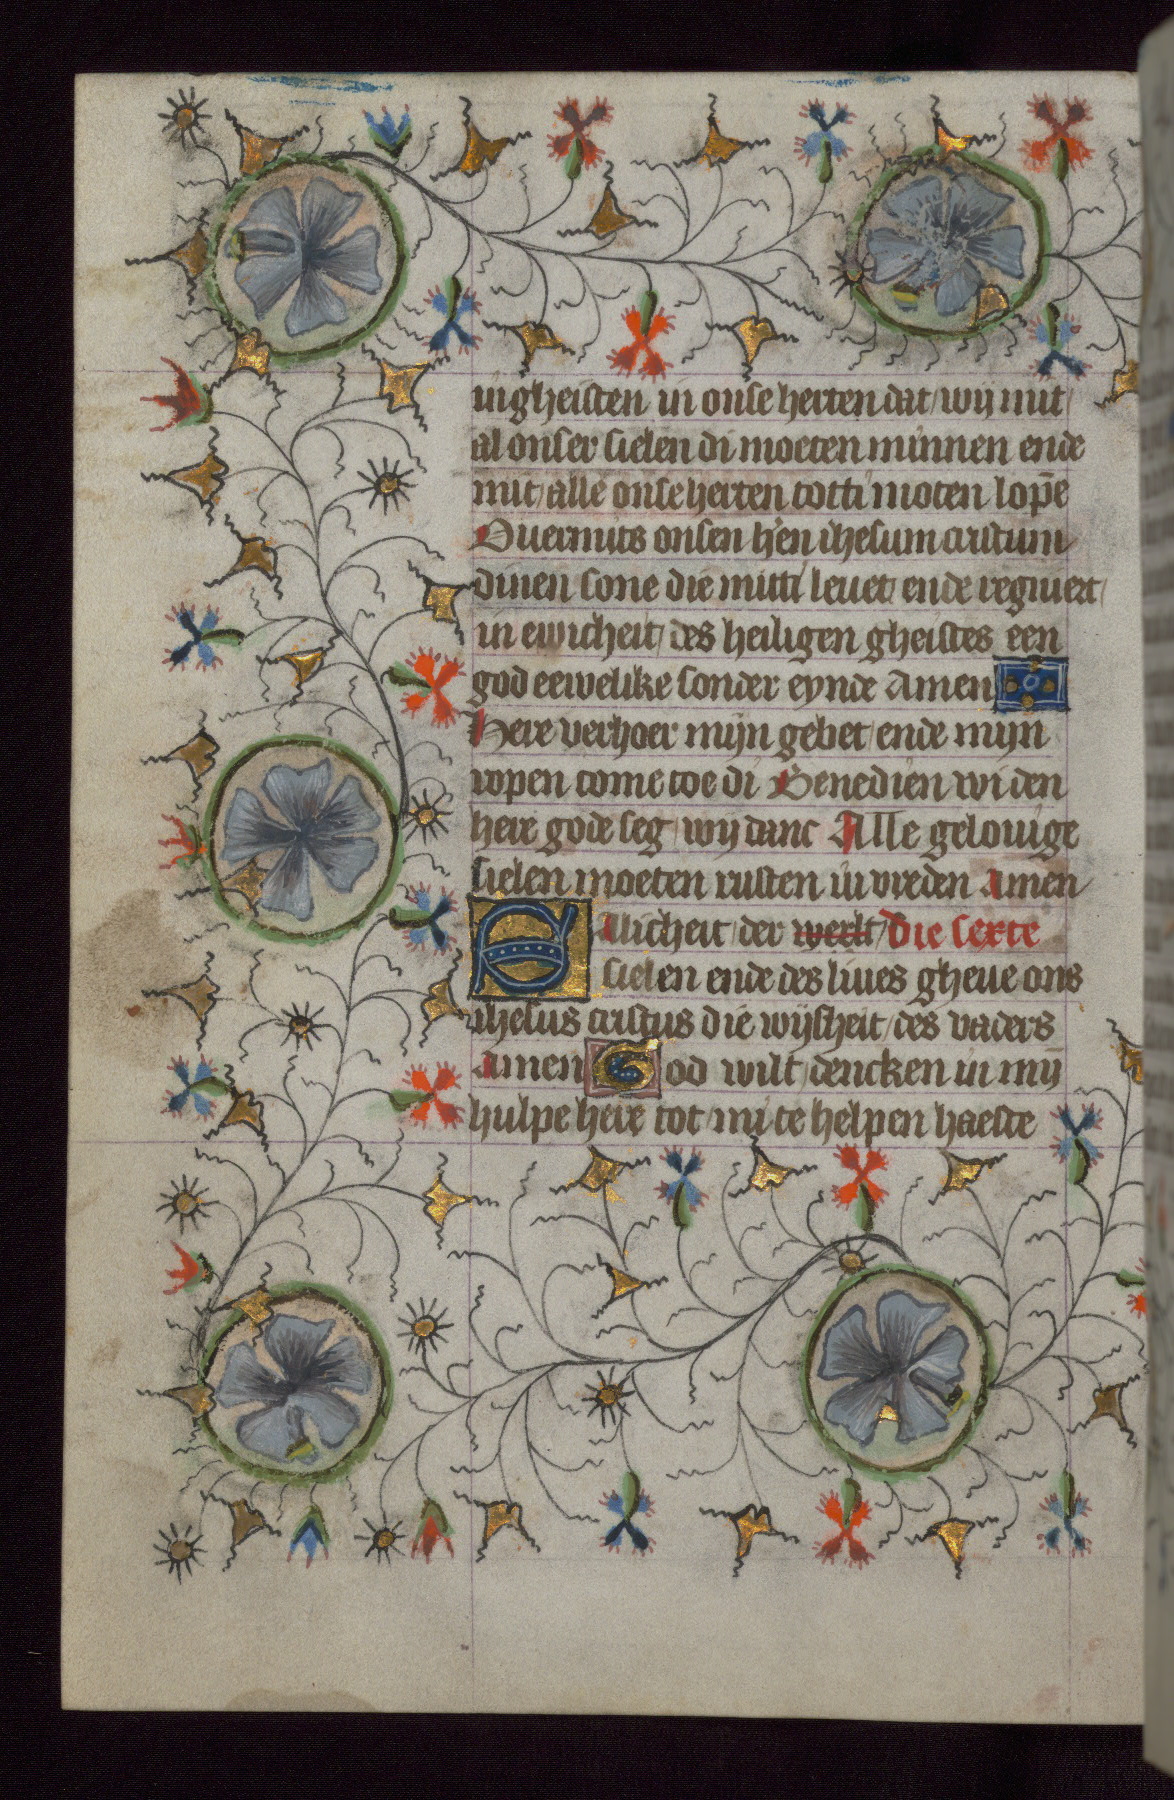 uigheisten in onse herten dat wij mit
al onser sielen di moeten minnen ende
mit alle onse herten totti moten lopē
Ouermits onsen h'en ihesum cristum
dinen sone die mitti leuet ende regniert
in ewicheit des heiligen gheistes een
god eewelike sonder eynde Amen
Here verhoer mijn gebet ende mijn
ropen come toe di Benedien wi den
here gode seg wij danc Alle gelouige
sielen moeten rusten in vreden Amen
Salicheit der werlt die sexte
sielen ende des liues gheue ons
ihesus cristus die wijsheit des vaders
Amen God wilt dencken in mij
hulpe here tot mi te helpen haeste